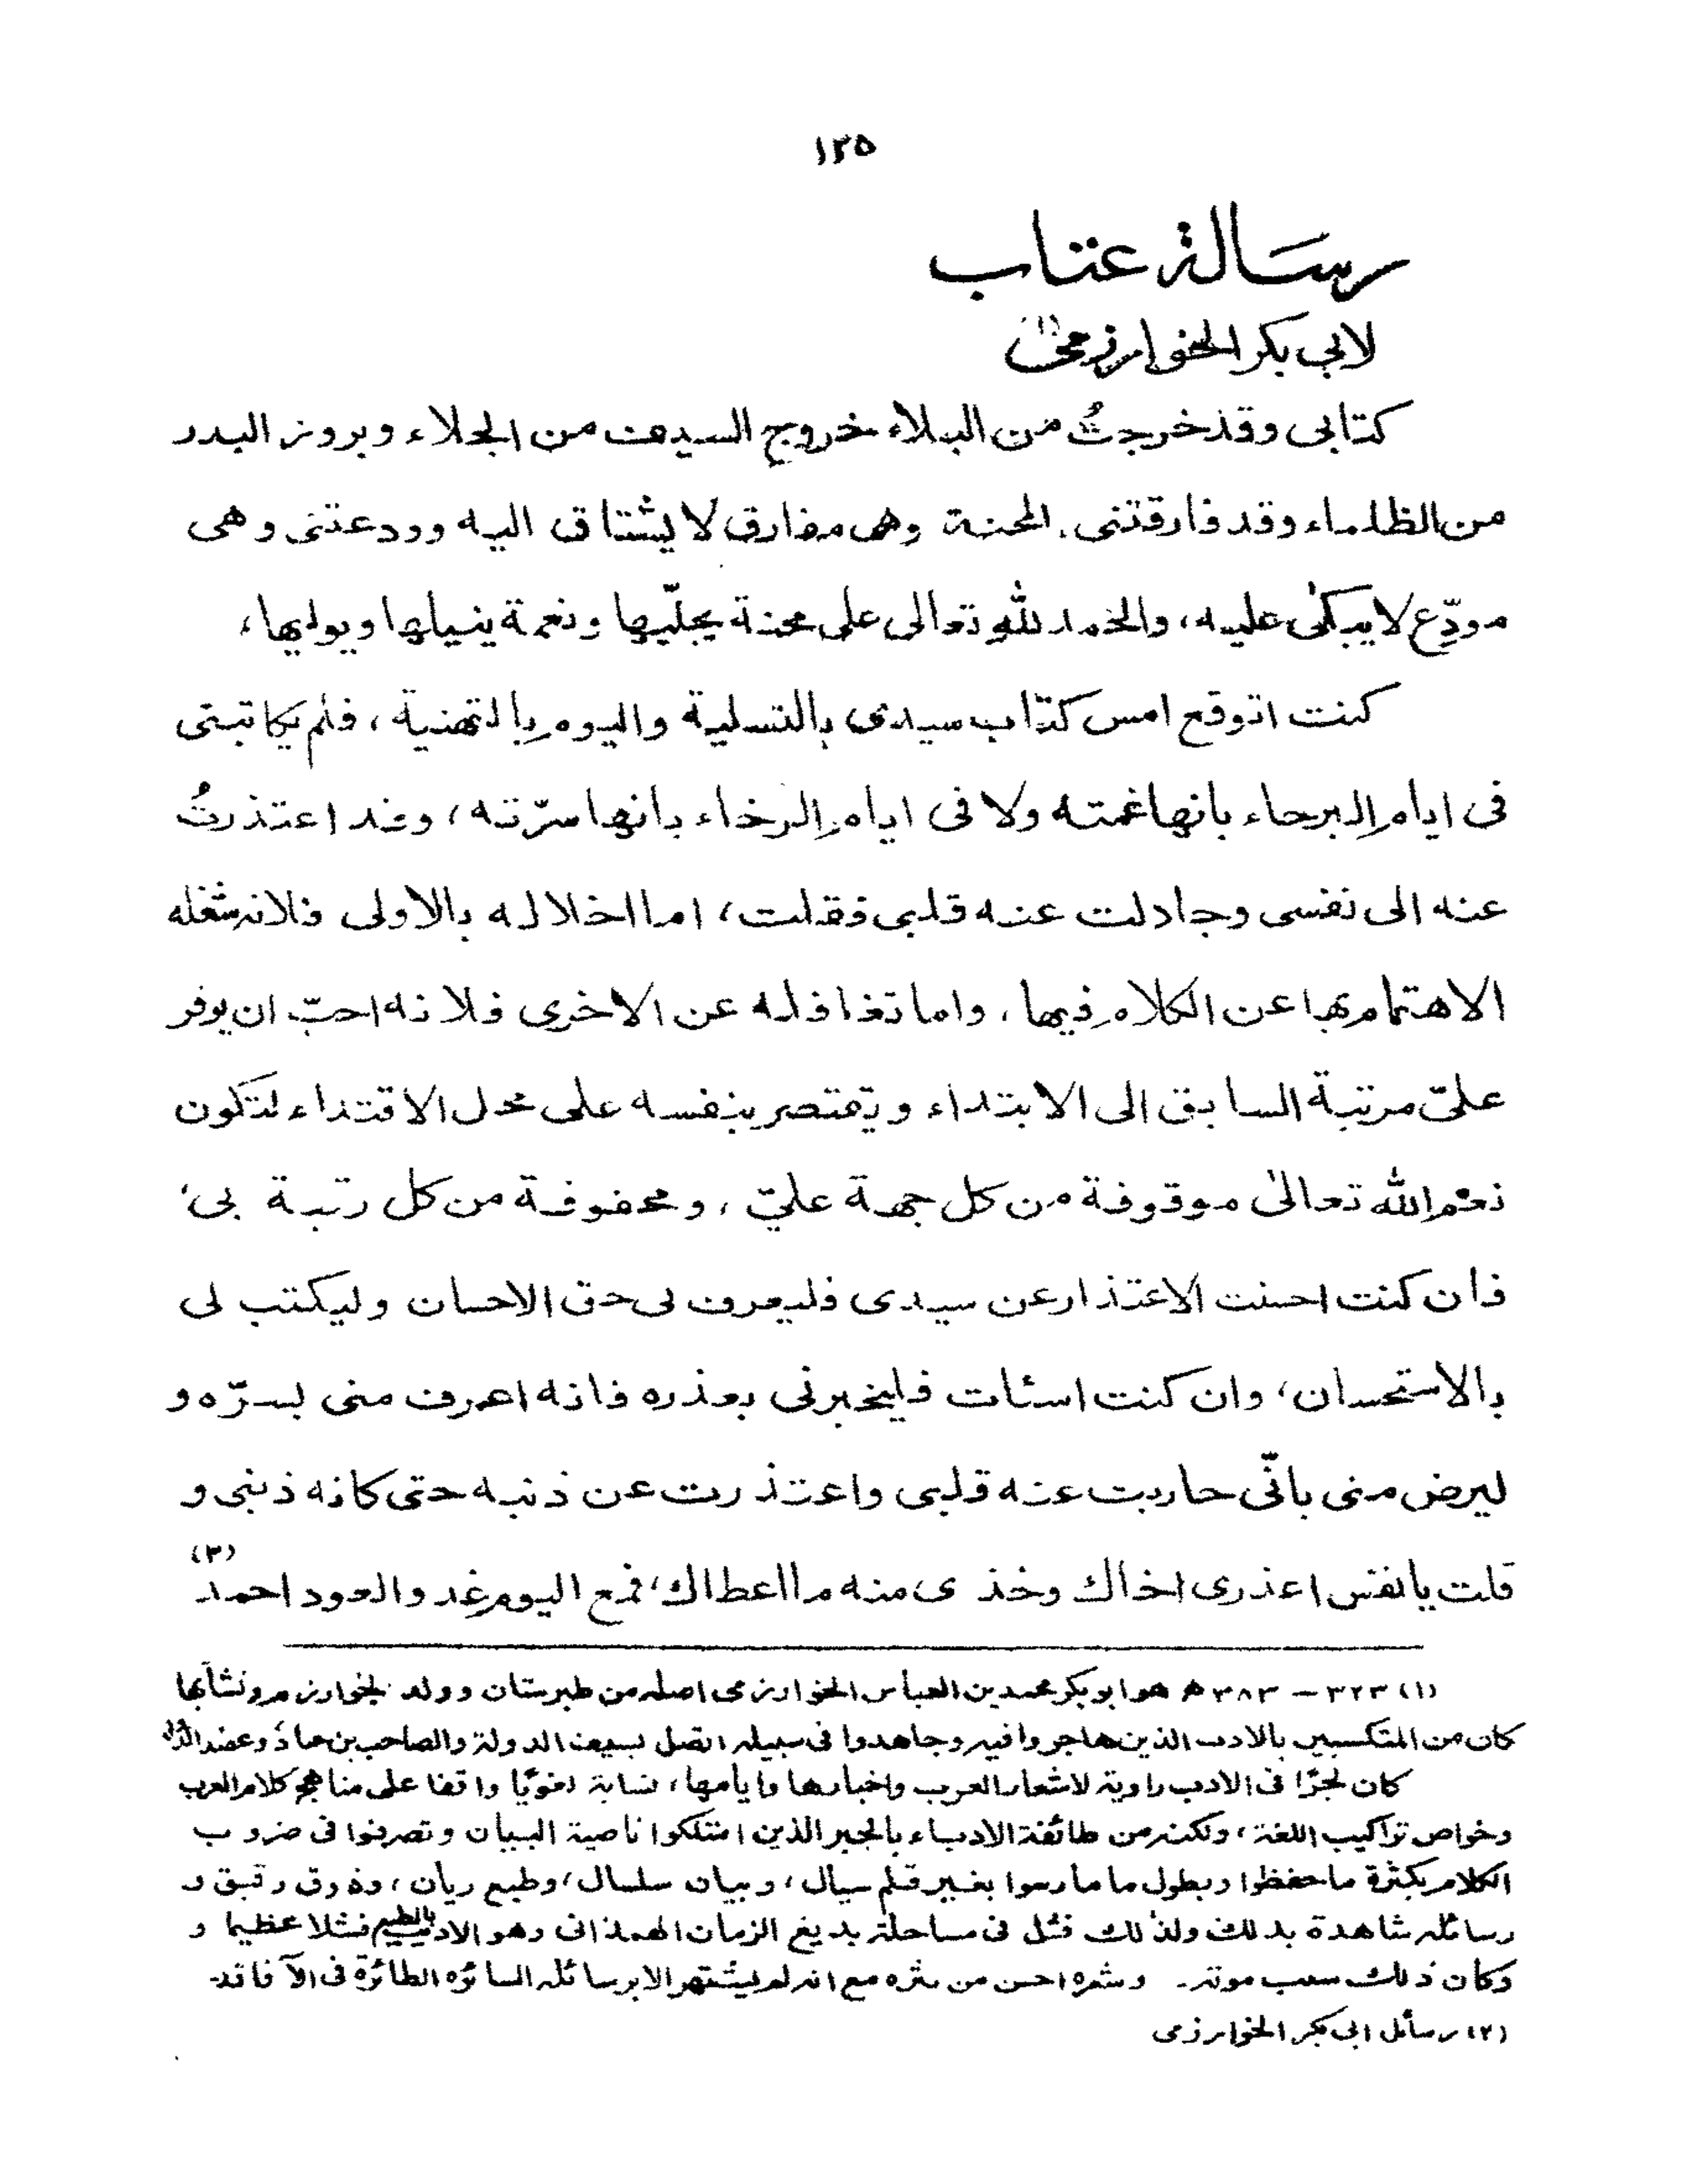 ١٢٥
رسالة عتاب
لابي بكر الخوارزمی (١)
كتابی وقد خرجتُ من البلاء خروج السيف من الجلاء وبروز البدر
من الظلماء وقد فارقتنی المحنة وهی مفارق لا يشتاق اليه وودعتنی وهی
مودّع لا يبكىٰ عليه، والحمد للّٰه تعالی علی محنة يجلّيها ونعمة ينيلها ويوليها،
كنت اتوقع امس كتاب سيدی بالتسلية واليوم بالتهنية، فلم يكاتبنی
فی ايام البرحاء بانها غمته ولا فی ايام الرخاء بانها سرّته، وقد اعتذرتُ
عنه الی نفسی وجادلت عنه قلبی فقلت، اما اخلاله بالاولی فلانه شغله
الاهتمام بها عن الكلام فيها، واما تغافله عن الاخری فلانه احبّ ان يوفر
علیّ مرتبة السابق الی الابتداء ويقتصر بنفسه علی محل الاقتداء لتكون
نعم اللّٰه تعالیٰ موقوفة من كل جهة علیّ، ومحفوفة من كل رتبة بی،
فأن كنت احسنت الاعتذار عن سيدی فليعرف لی حق الاحسان وليكتب لی
بالاستحسان، وان كنت اسئات فليخبرنی بعذره فانه اعرف منی بسرّه و
ليرض منی بانّی حاربت عنه قلبی واعتذرت عن ذنبه حتی كانه ذنبی و
قلت يا نفس اعذری اخاك وخذی منه ما اعطاك، فمع اليوم غد والعود احمد (٢)
(١) ٣٢٣ – ٣٨٣ ھ هو ابو بكر محمد بن العباس الخوارزمی اصله من طبرستان وولد بخوارزم ونشأ بها
كان من المتكسبين بالادب الذين هاجروا فيه وجاهدوا فی سبيله اتصل بسيف الدولة والصاحب بن عباد وعضد الدولة
كان لجرًا فی الادب راوية لاشعار العرب واخبارها وايامها، نسابة لغويًا واقفا علی مناهج كلام العرب
وخواص تراكيب اللغة، ولكنه من طائفة الادباء بالجبر الذين امتلكوا ناصية البيان وتصرفوا فی ضروب
الكلام بكثرة ما حفظوا وبطول ما مارسوا بغير قلم سيال، وبيان سلسال، وطبع ريان، وذوق رقيق و
رسائله شاهدة بذلك ولذلك فشل فی مساجلة بديع الزمان الهمذانی وهو الاديب بالطبع فشلا عظيما و
وكان ذلك سبب موته۔ وشعره احسن من نثره مع انه لم يشتهر الا برسائله السائره الطائرة فی الآفاق۔
(٢) رسائل ابی بكر الخوارزمی